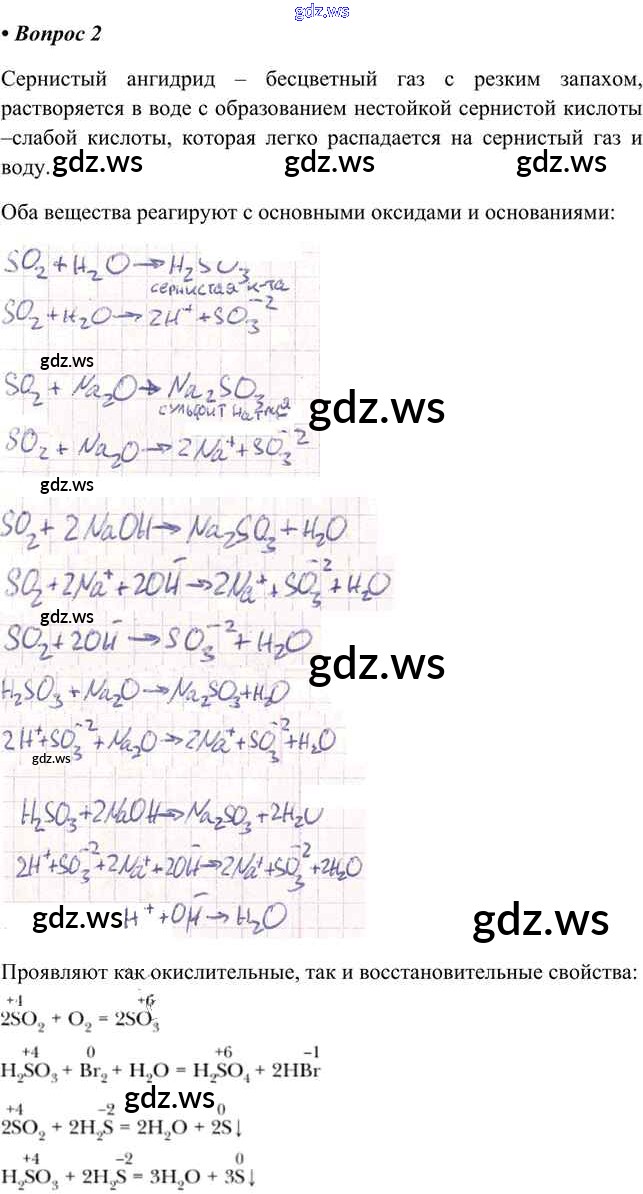 gdz.ws
• Вопрос 2
Сернистый ангидрид – бесцветный газ с резким запахом,
растворяется в воде с образованием нестойкой сернистой кислоты
–слабой кислоты, которая легко распадается на сернистый газ и
воду.
gdz.ws gdz.ws gdz.ws
Оба вещества реагируют с основными оксидами и основаниями:
SO₂+H₂O→H₂SO₃
сернистая к-та
SO₂+H₂O→2H⁺+SO₃⁻²
gdz.ws
SO₂+Na₂O→Na₂SO₃
сульфит натрия
gdz.ws
SO₂+Na₂O→2Na⁺+SO₃⁻²
gdz.ws
SO₂+2NaOH→Na₂SO₃+H₂O
SO₂+2Na⁺+2OH⁻→2Na⁺+SO₃⁻²+H₂O
gdz.ws
SO₂+2OH⁻→SO₃⁻²+H₂O
gdz.ws
H₂SO₃+Na₂O→Na₂SO₃+H₂O
2H⁺+SO₃⁻²+Na₂O→2Na⁺+SO₃⁻²+H₂O
gdz.ws
H₂SO₃+2NaOH→Na₂SO₃+2H₂O
2H⁺+SO₃⁻²+2Na⁺+2OH⁻→2Na⁺+SO₃⁻²+2H₂O
gdz.ws H⁺+OH⁻→H₂O gdz.ws
Проявляют как окислительные, так и восстановительные свойства:
+4 +6
2SO₂ + O₂ = 2SO₃
+4 0 +6 −1
H₂SO₃ + Br₂ + H₂O = H₂SO₄ + 2HBr
gdz.ws
+4 −2 0
2SO₂ + 2H₂S = 2H₂O + 2S↓
+4 −2 0
H₂SO₃ + 2H₂S = 3H₂O + 3S↓